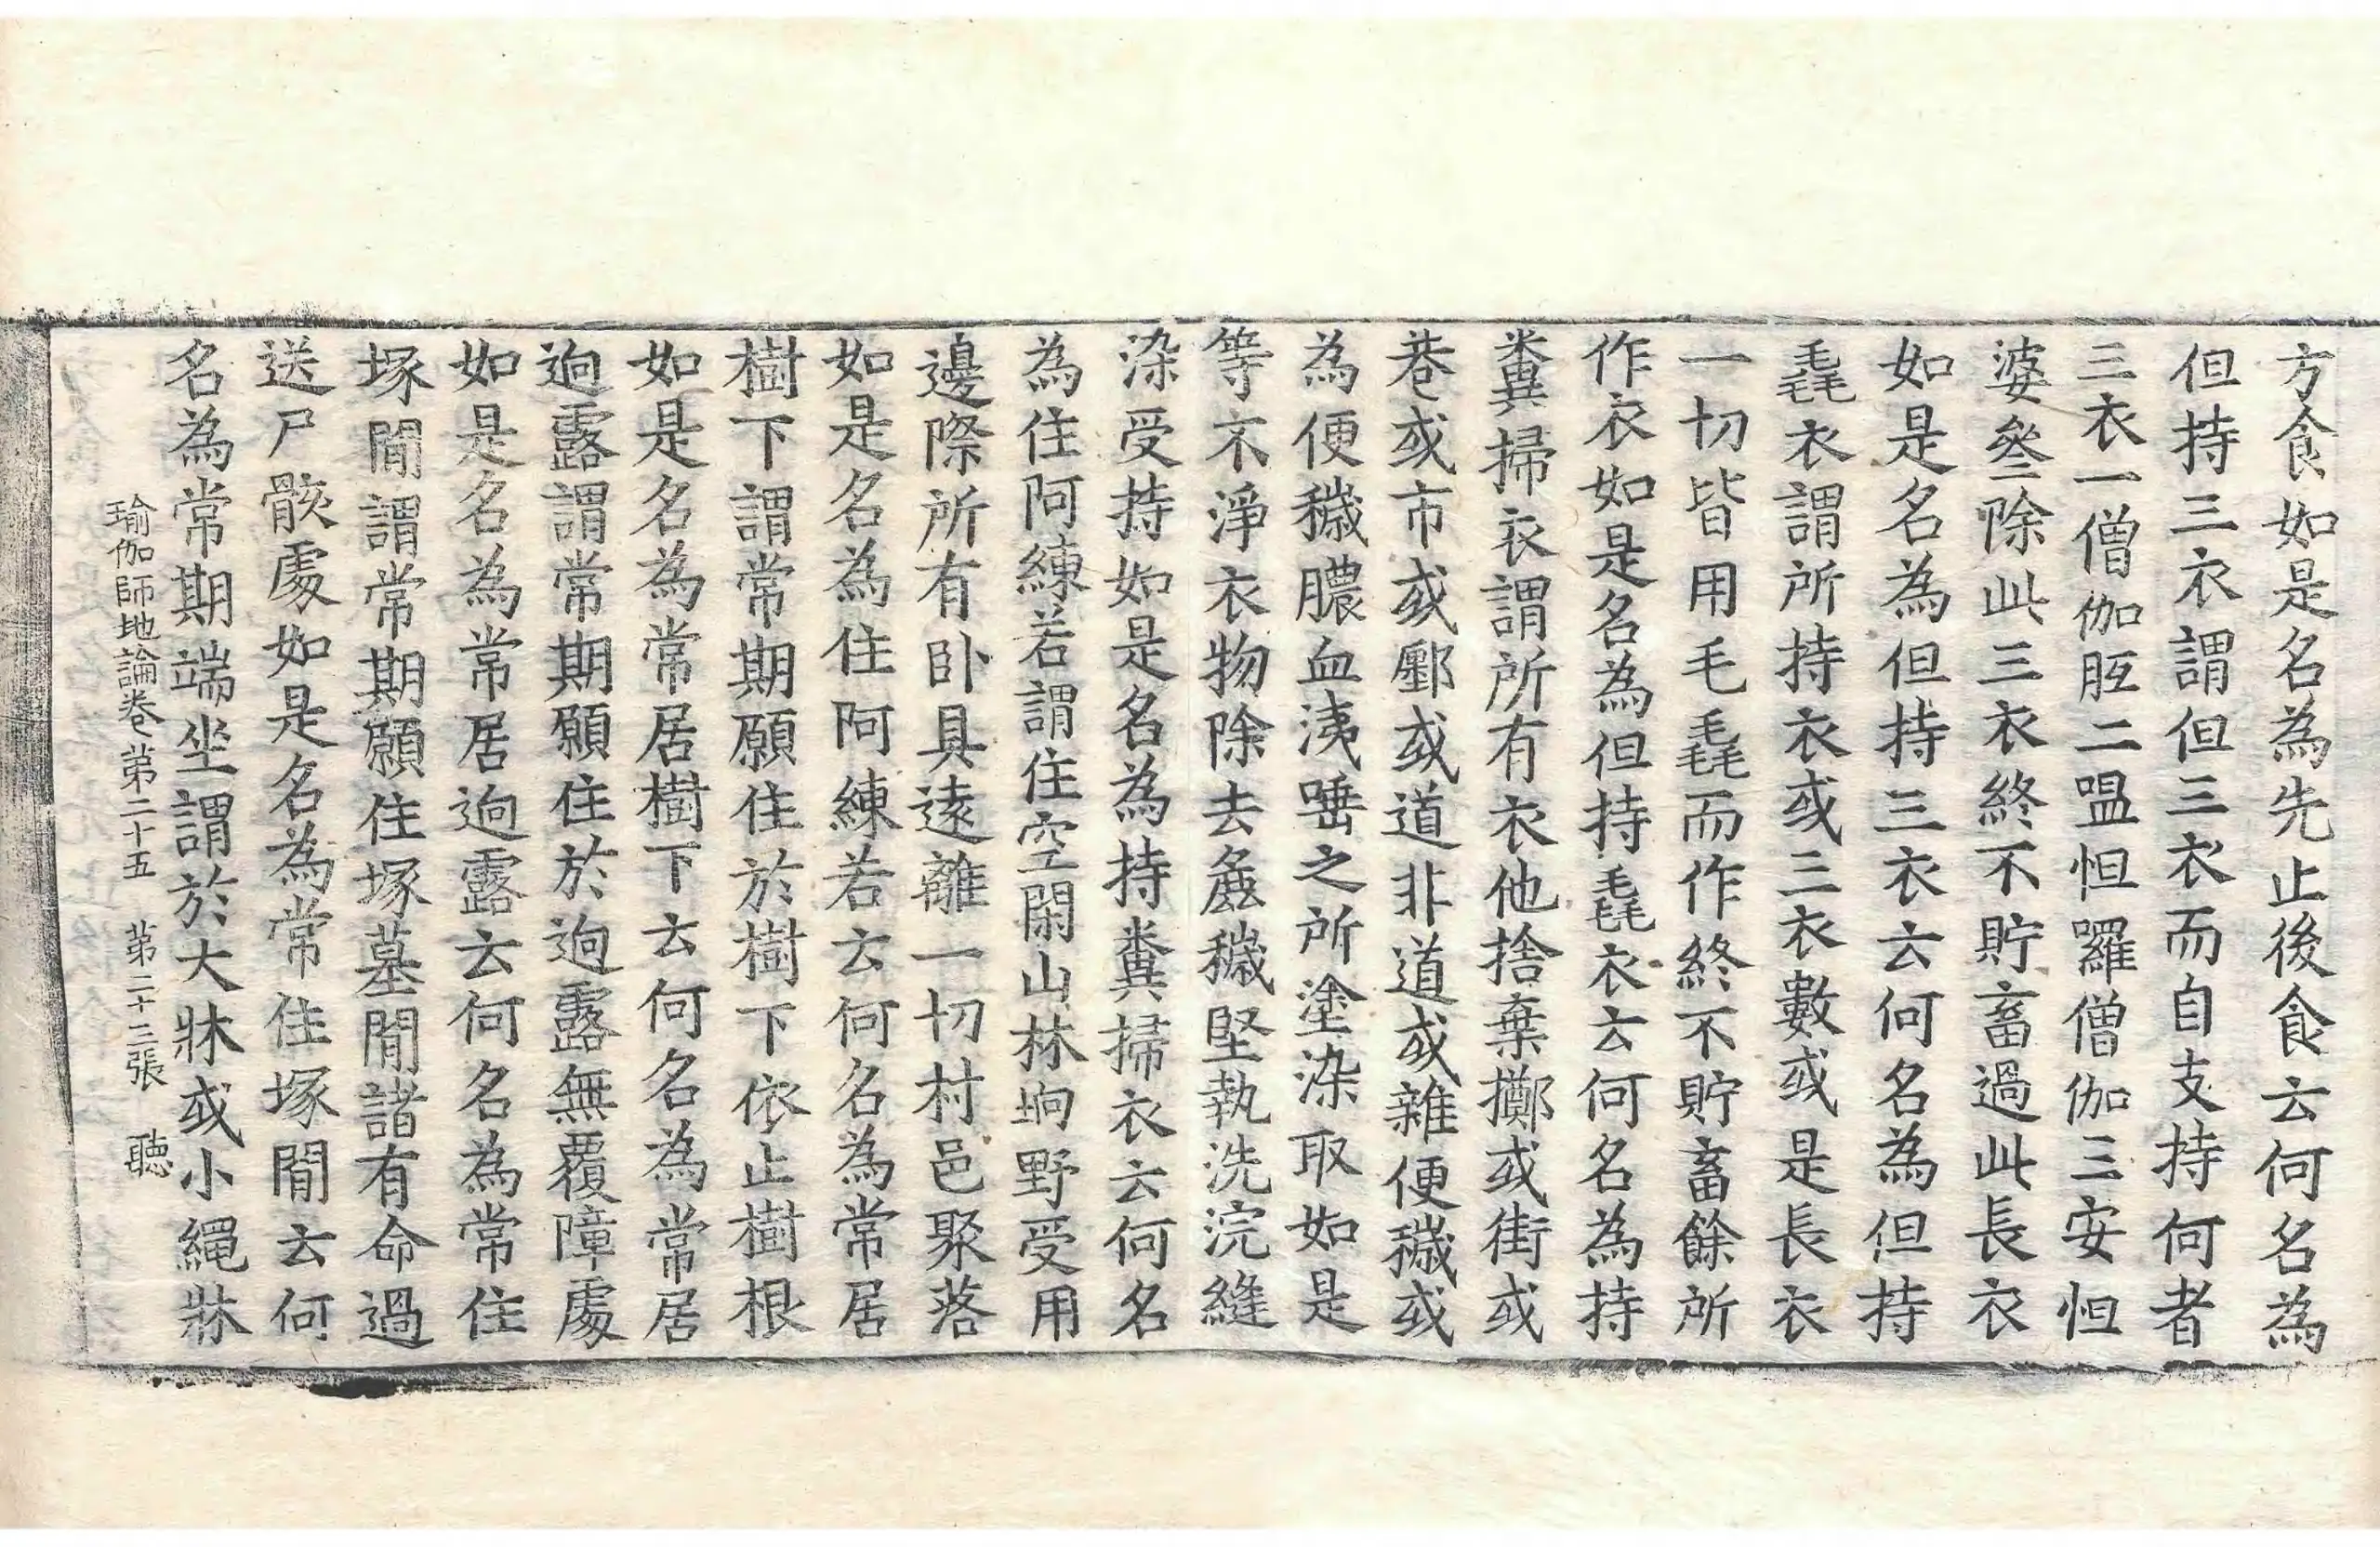 方食如是名為先止後食云何名為
但持三衣謂但三衣而自支持何者
三衣一僧伽胝二嗢怛羅僧伽三安怛
婆叅除此三衣終不貯畜過此長衣
如是名為但持三衣云何名為但持
毳衣謂所持衣或三衣數或是長衣
一切皆用毛毳而作終不貯畜餘所
作衣如是名為但持毳衣云何名為持
糞掃衣謂所有衣他捨棄擲或街或
巷或市或鄽或道非道或雜便穢或
為便穢膿血洟唾之所塗染取如是
等不淨衣物除去麁穢堅執洗浣縫
染受持如是名為持糞掃衣云何名
為住阿練若謂住空閑山林坰野受用
邊際所有臥具遠離一切村邑聚落
如是名為住阿練若云何名為常居
樹下謂常期願住於樹下依止樹根
如是名為常居樹下云何名為常居
逈露謂常期願住於逈露無覆障處
如是名為常居逈露云何名為常住
塚間謂常期願住塚墓間諸有命過
送尸骸處如是名為常住塚間云何
名為常期端坐謂於大牀或小繩牀
瑜伽師地論卷第二十五 第二十三張 聽